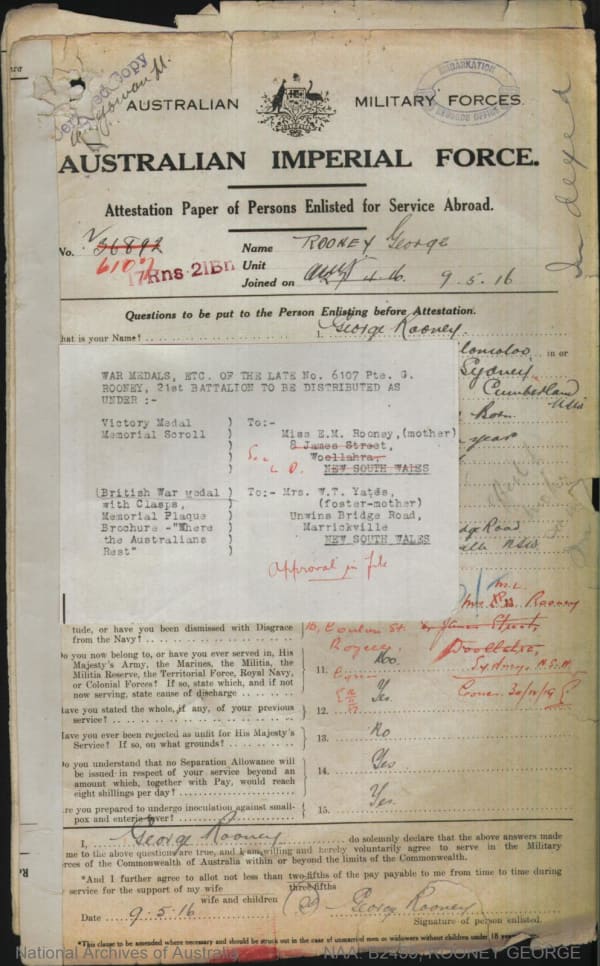 Certified Copy
EMBARKATION
RECORDS OFFICE
Indexed
AUSTRALIAN MILITARY FORCES.
AUSTRALIAN IMPERIAL FORCE.
Attestation Paper of Persons Enlisted for Service Abroad.
No. 36892
6107
17 Rns. 21Bn
Name ROONEY George
Unit
Joined on 4.16. 9.5.16
Questions to be put to the Person Enlisting before Attestation.
hat is your Name?
1. George Rooney.
in or
Sydney
Cumberland
NSW
WAR MEDALS, ETC. OF THE LATE No. 6107 Pte. G.
ROONEY, 21st BATTALION TO BE DISTRIBUTED AS
UNDER :-
Victory Medal ) To:-
Memorial Scroll ) Miss E.M. Rooney,(mother)
) 8 James Street,
) Woollahra,
) NEW SOUTH WALES
(British War medal ) To:- Mrs. W.T. Yates,
with Clasps, ) (foster-mother)
Memorial Plaque ) Unwins Bridge Road,
Brochure -"Where ) Marrickville
the Australians ) NEW SOUTH WALES
Rest" )
Approval in file
Road
NSW
Rooney
James Street,
Woollahra,
Sydney. N.S.W.
tude, or have you been dismissed with Disgrace
from the Navy?
o you now belong to, or have you ever served in, His
Majesty's Army, the Marines, the Militia, the
Militia Reserve, the Territorial Force, Royal Navy,
or Colonial Forces? If so, state which, and if not
now serving, state cause of discharge
11. No.
ave you stated the whole, if any, of your previous
service?
12. Yes
ave you ever been rejected as unfit for His Majesty's
Service? If so, on what grounds?
13. No
o you understand that no Separation Allowance will
be issued in respect of your service beyond an
amount which, together with Pay, would reach
eight shillings per day?
14. Yes
re you prepared to undergo inoculation against small-
pox and enteric fever?
15. Yes.
I, George Rooney do solemnly declare that the above answers made
me to the above questions are true, and I am willing and hereby voluntarily agree to serve in the Military
rces of the Commonwealth of Australia within or beyond the limits of the Commonwealth.
*And I further agree to allot not less than two-fifths of the pay payable to me from time to time during
three-fifths
service for the support of my wife
wife and children
Date 9.5.16
George Rooney
Signature of person enlisted.
*This clause to be amended where necessary and should be struck out in the case of unmarried men or widowers without children under 18 year
National Archives of Australia
NAA: B2455, ROONEY GEORGE